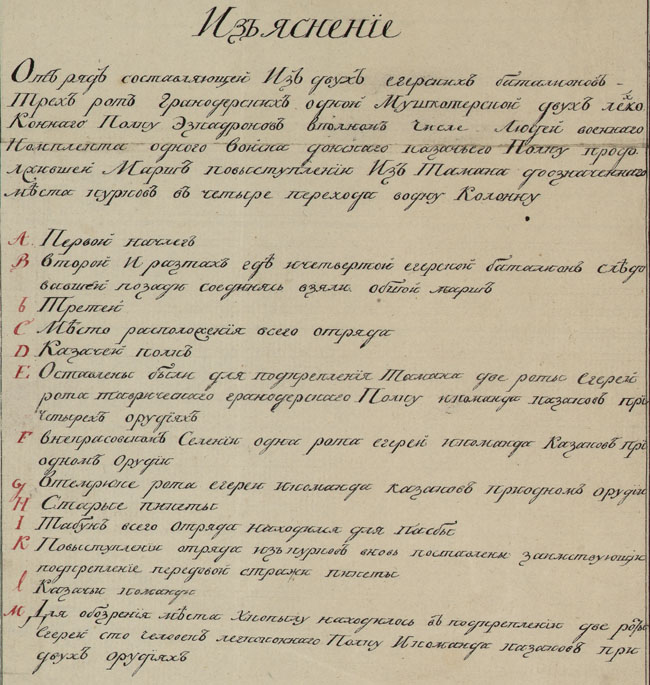 Изъяснение
Отъ рядъ составляющей Изъ двухъ егерскихъ баталионовъ –
Трехъ ротъ Гранодерскихъ одной Мушкотерской двухъ лехко
Коннаго Полку Эзкадроновъ вполномъ числе людей военнаго
Комплекта одного воиска донскаго казачьего Полку продо
лжившей Маршъ повыступлении Изъ Тамана доозначеннаго
мѣста курковъ въ четыре перехода водну Колонну
A. Первой начлегъ
B Второй И разтахъ гдѣ ичетвертой егерской баталионъ слѣдо
вавшей позади соединясь взяли общой маршъ
b Третей
C Мѣсто расположения всего отряда
D Казачей полкъ
E. Оставлены были для подкрепления Тамана две роты Егерей
рота таврическаго гранодерскаго Полку икоманда казаковъ при
чтырехъ орудияхъ
F внекрасовскомъ Селении одна рота егерей икоманда Казаковъ при
одномъ Орудии
g Втемрюке рота егереи икоманда казаковъ приодномъ орудии
H Старые пикеты
I Табунъ всего Отряда находился для Пасбы
K Повыступлении отряда изъ курковъ вновь поставлены
подкрепление передовой стражи пикеты
l Казачьи команды
M, Для обозрения мѣста находилось въ подкреплении две роты
Егерей сто легкаконнаго Полку Икоманда казаковъ при
двухъ орудияхъ